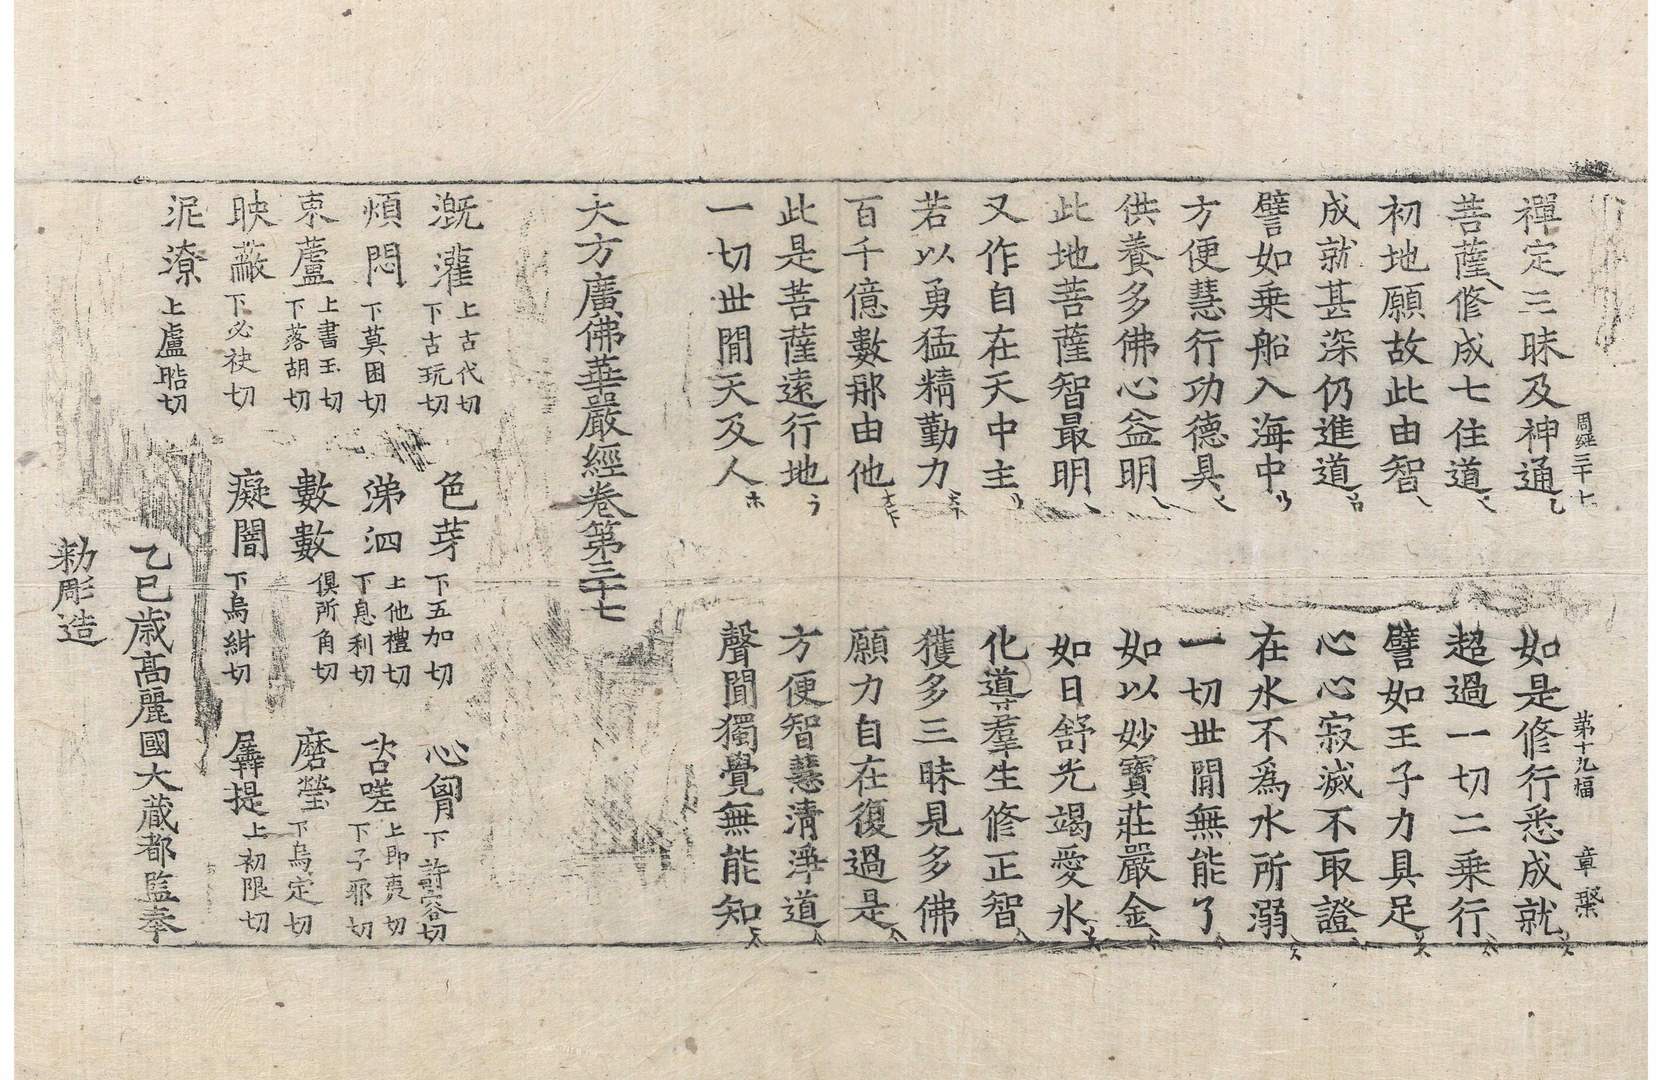 周經三十七 第十九幅 章槩
禪定三昧及神通 如是修行悉成就
菩薩修成七住道 超過一切二乘行
初地願故此由智 譬如王子力具足
成就甚深仍進道 心心寂滅不取證
譬如乘船入海中 在水不爲水所溺
方便慧行功德具 一切世閒無能了
供養多佛心益明 如以妙寶莊嚴金
此地菩薩智最明 如日舒光竭愛水
又作自在天中主 化導羣生修正智
若以勇猛精勤力 獲多三昧見多佛
百千億數那由他 願力自在復過是
此是菩薩遠行地 方便智慧清淨道
一切世閒天及人 聲聞獨覺無能知
大方廣佛華嚴經卷第三十七
溉灌 上古代切下古玩切 色芽 下五加切 心胷 下許容切
煩悶 下莫困切 涕泗 上他禮切下息利切 咨嗟 上即夷切下子邪切
束蘆 上書玉切下落胡切 數數 俱所角切 磨瑩 下烏定切
映蔽 下必袂切 癡闇 下烏紺切 羼提 上初限切
泥潦 上盧晧切
乙巳歲高麗國大藏都監奉
勅彫造